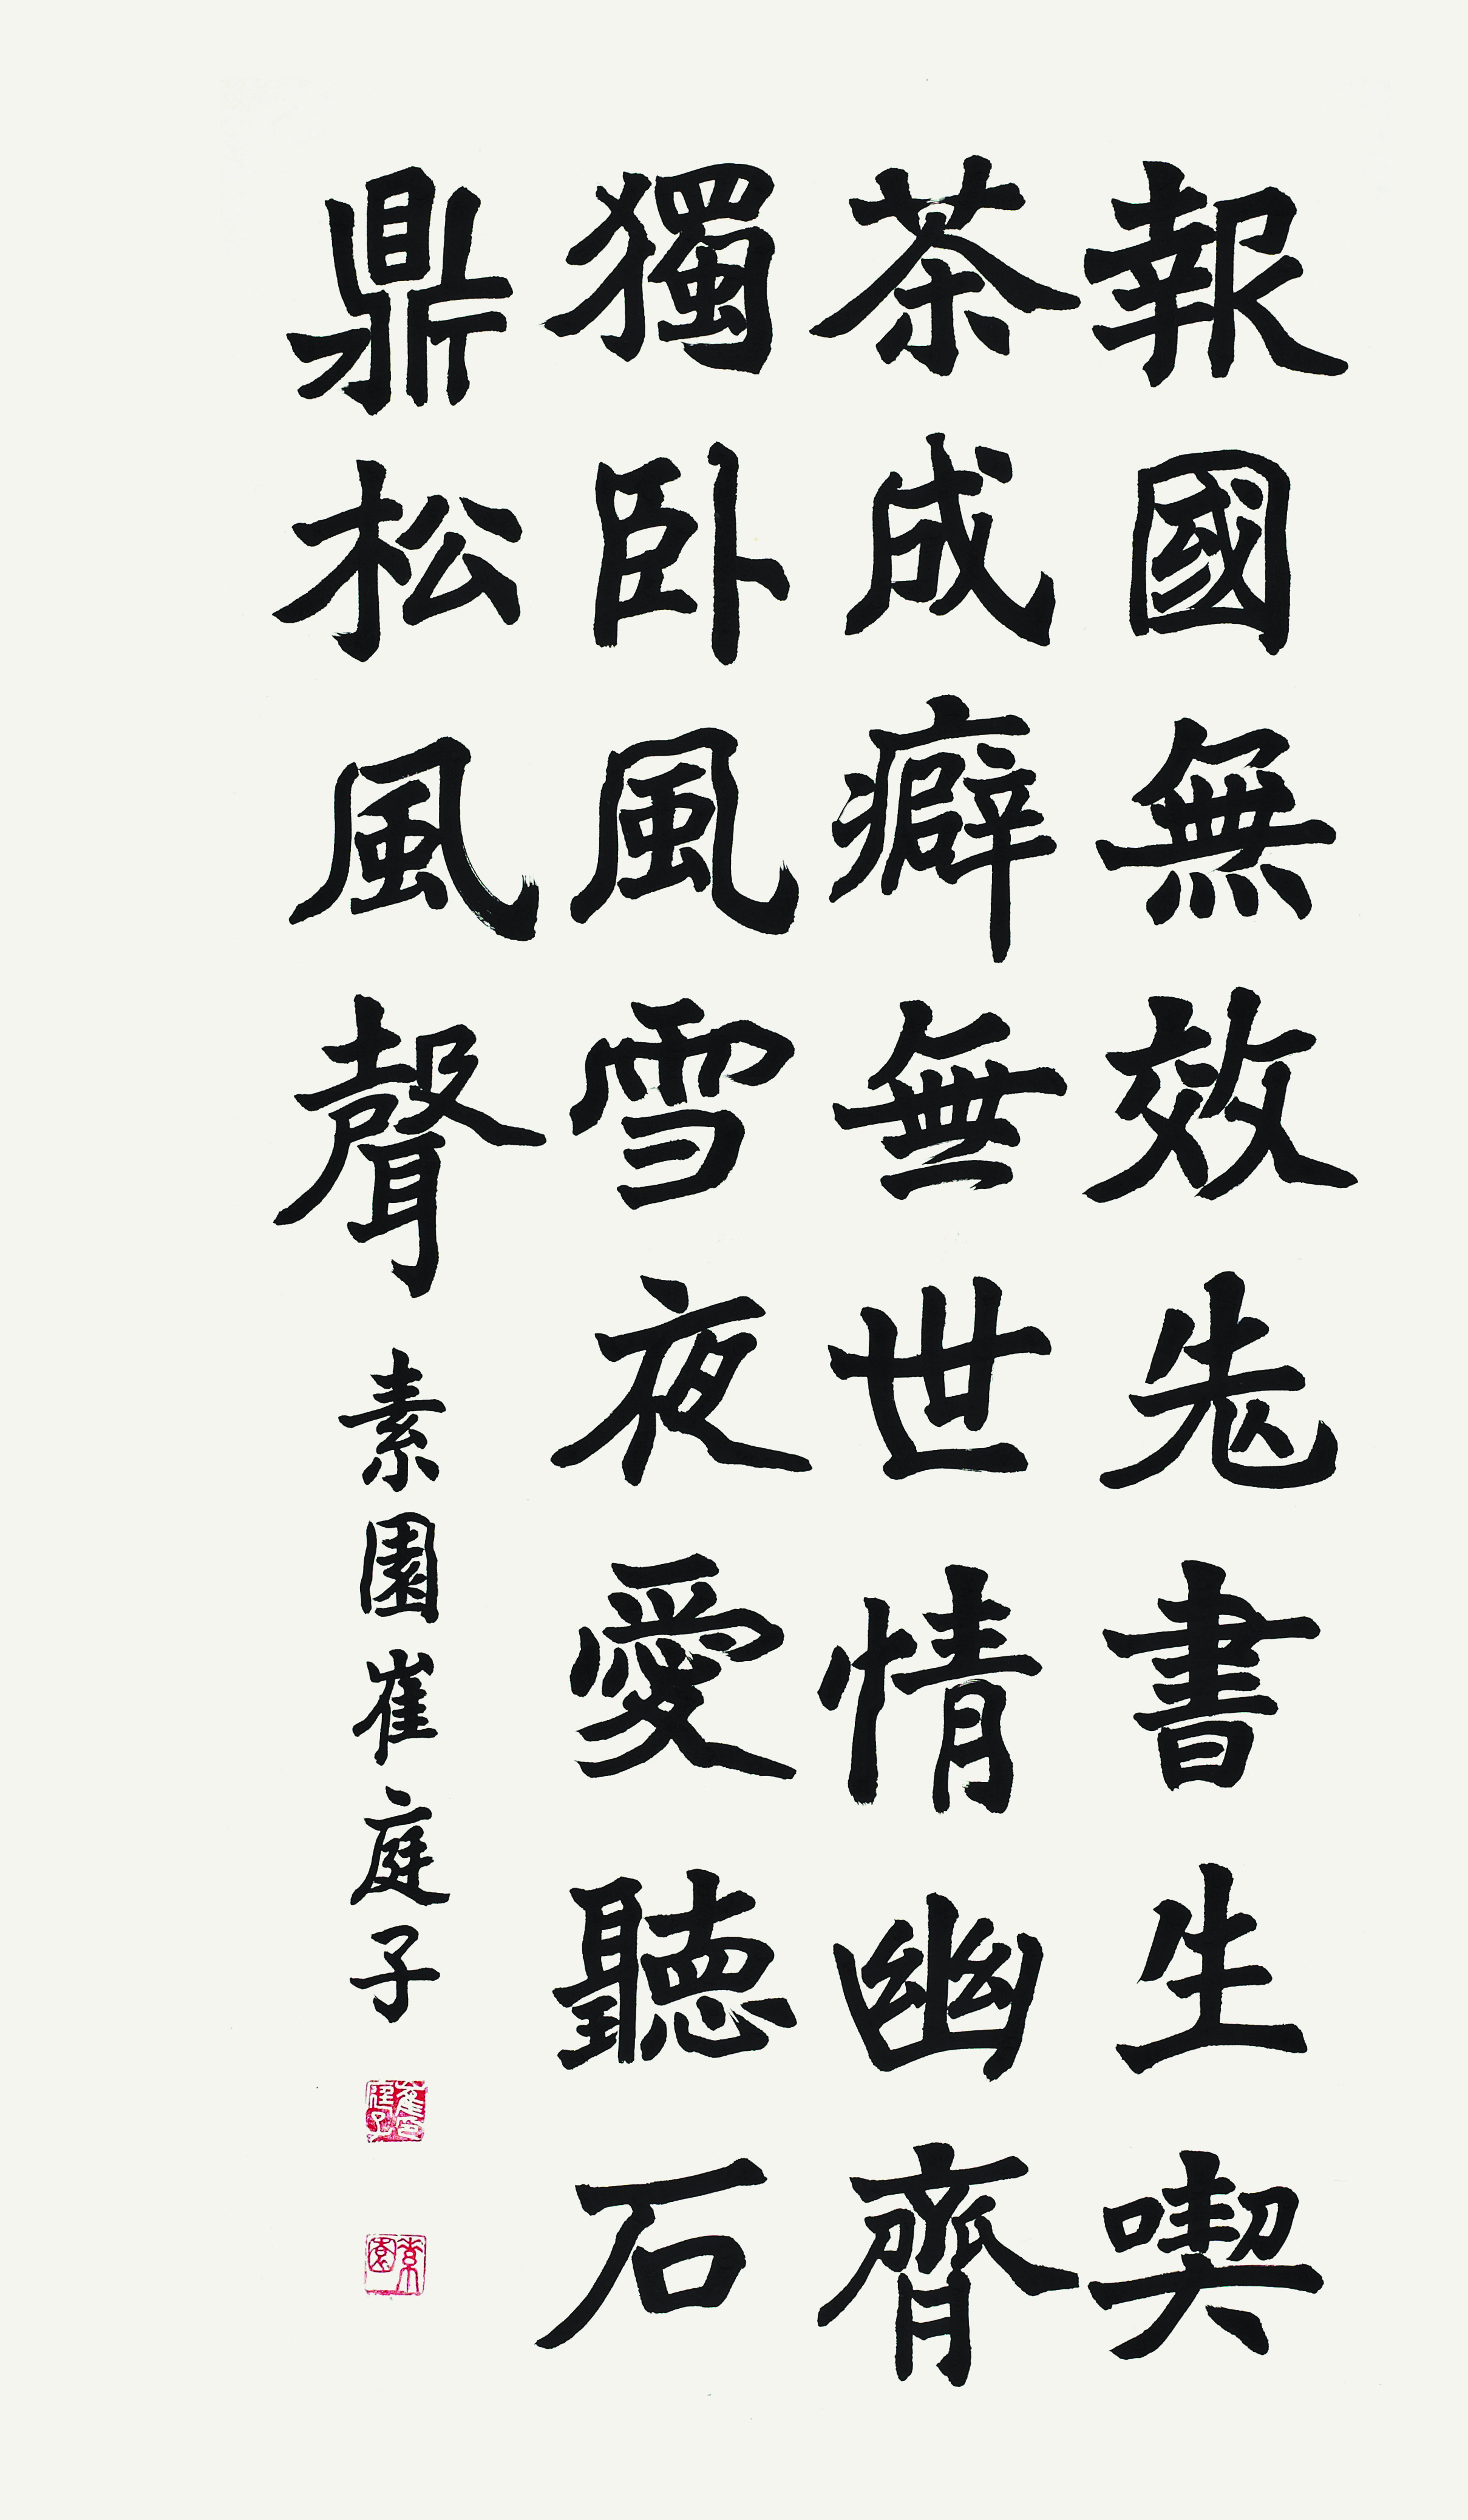 報國無效先書生喫
茶成癖無世情幽齋
獨卧風雪夜愛聽石
鼎松風聲 素園崔庭子
素園